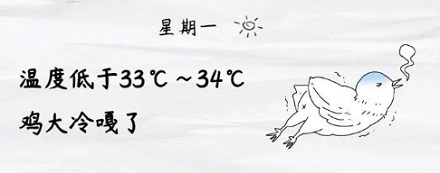 星期一
温度低于33℃～34℃
鸡大冷嘎了